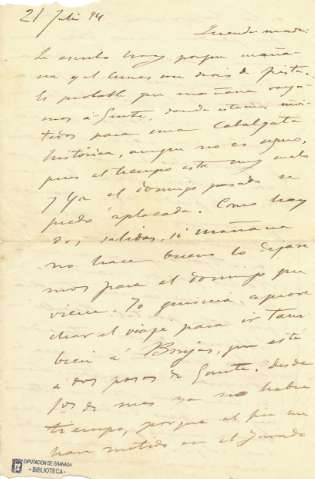 21 Julio 94
Querida madre:
Le escribo hoy porque maña-
na y el lunes son dias de fiesta.
Es probable que mañana vaya-
mos á Gante, donde estamos invi-
tados para una cabalgata
histórica, aunque no es seguro,
pues el tiempo está muy malo
y ya el domingo pasado se
quedó aplazada. Como hay
dos salidas, si mañana
no hace bueno lo dejare-
mos para el domingo que
viene. Yo quisiera aprove-
char el viaje para ir tam-
bien á Brujas, que está
a dos pasos de Gante; desde
los de mas ya no habrá
tiempo, porque al fin me
han metido en el Jurado
DIPUTACIÓN DE GRANADA
- BIBLIOTECA -